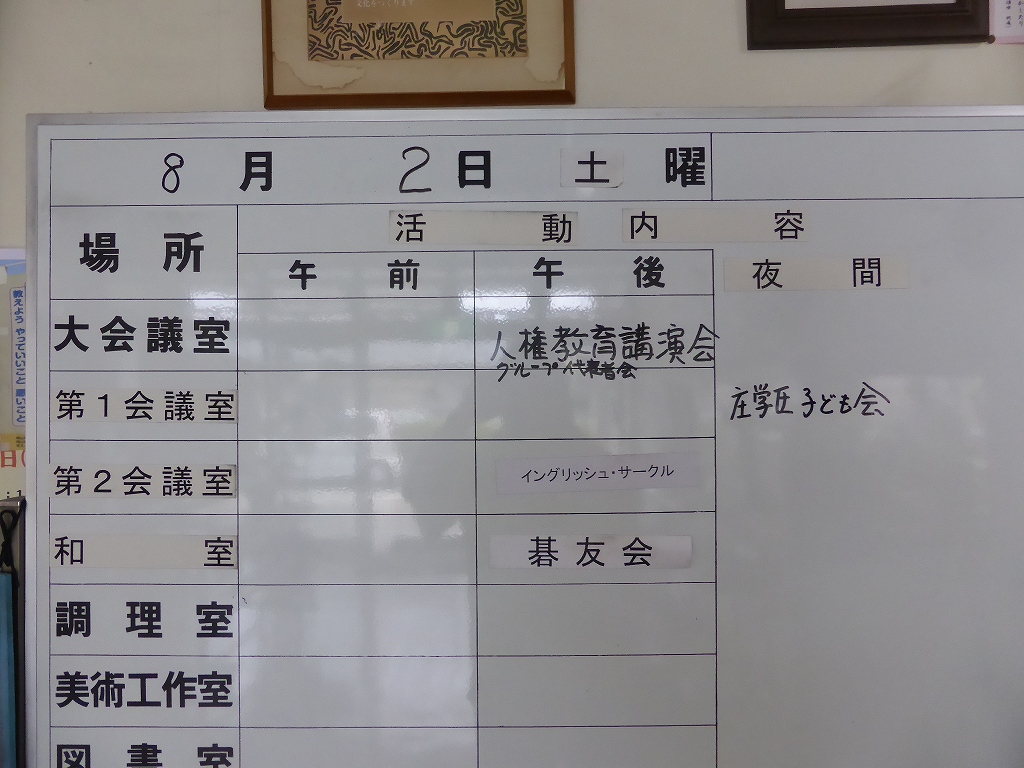 文化をつくります
8月 2日 土 曜
場 所
活 動 内 容
午 前 午 後 夜 間
大会議室 人権教育講演会
グループ代表者会
第1会議室 庄学区子ども会
第2会議室 イングリッシュ・サークル
和 室 碁友会
調 理 室
美術工作室
図 書 室
教えよう やっていいこと 悪いこと
日(